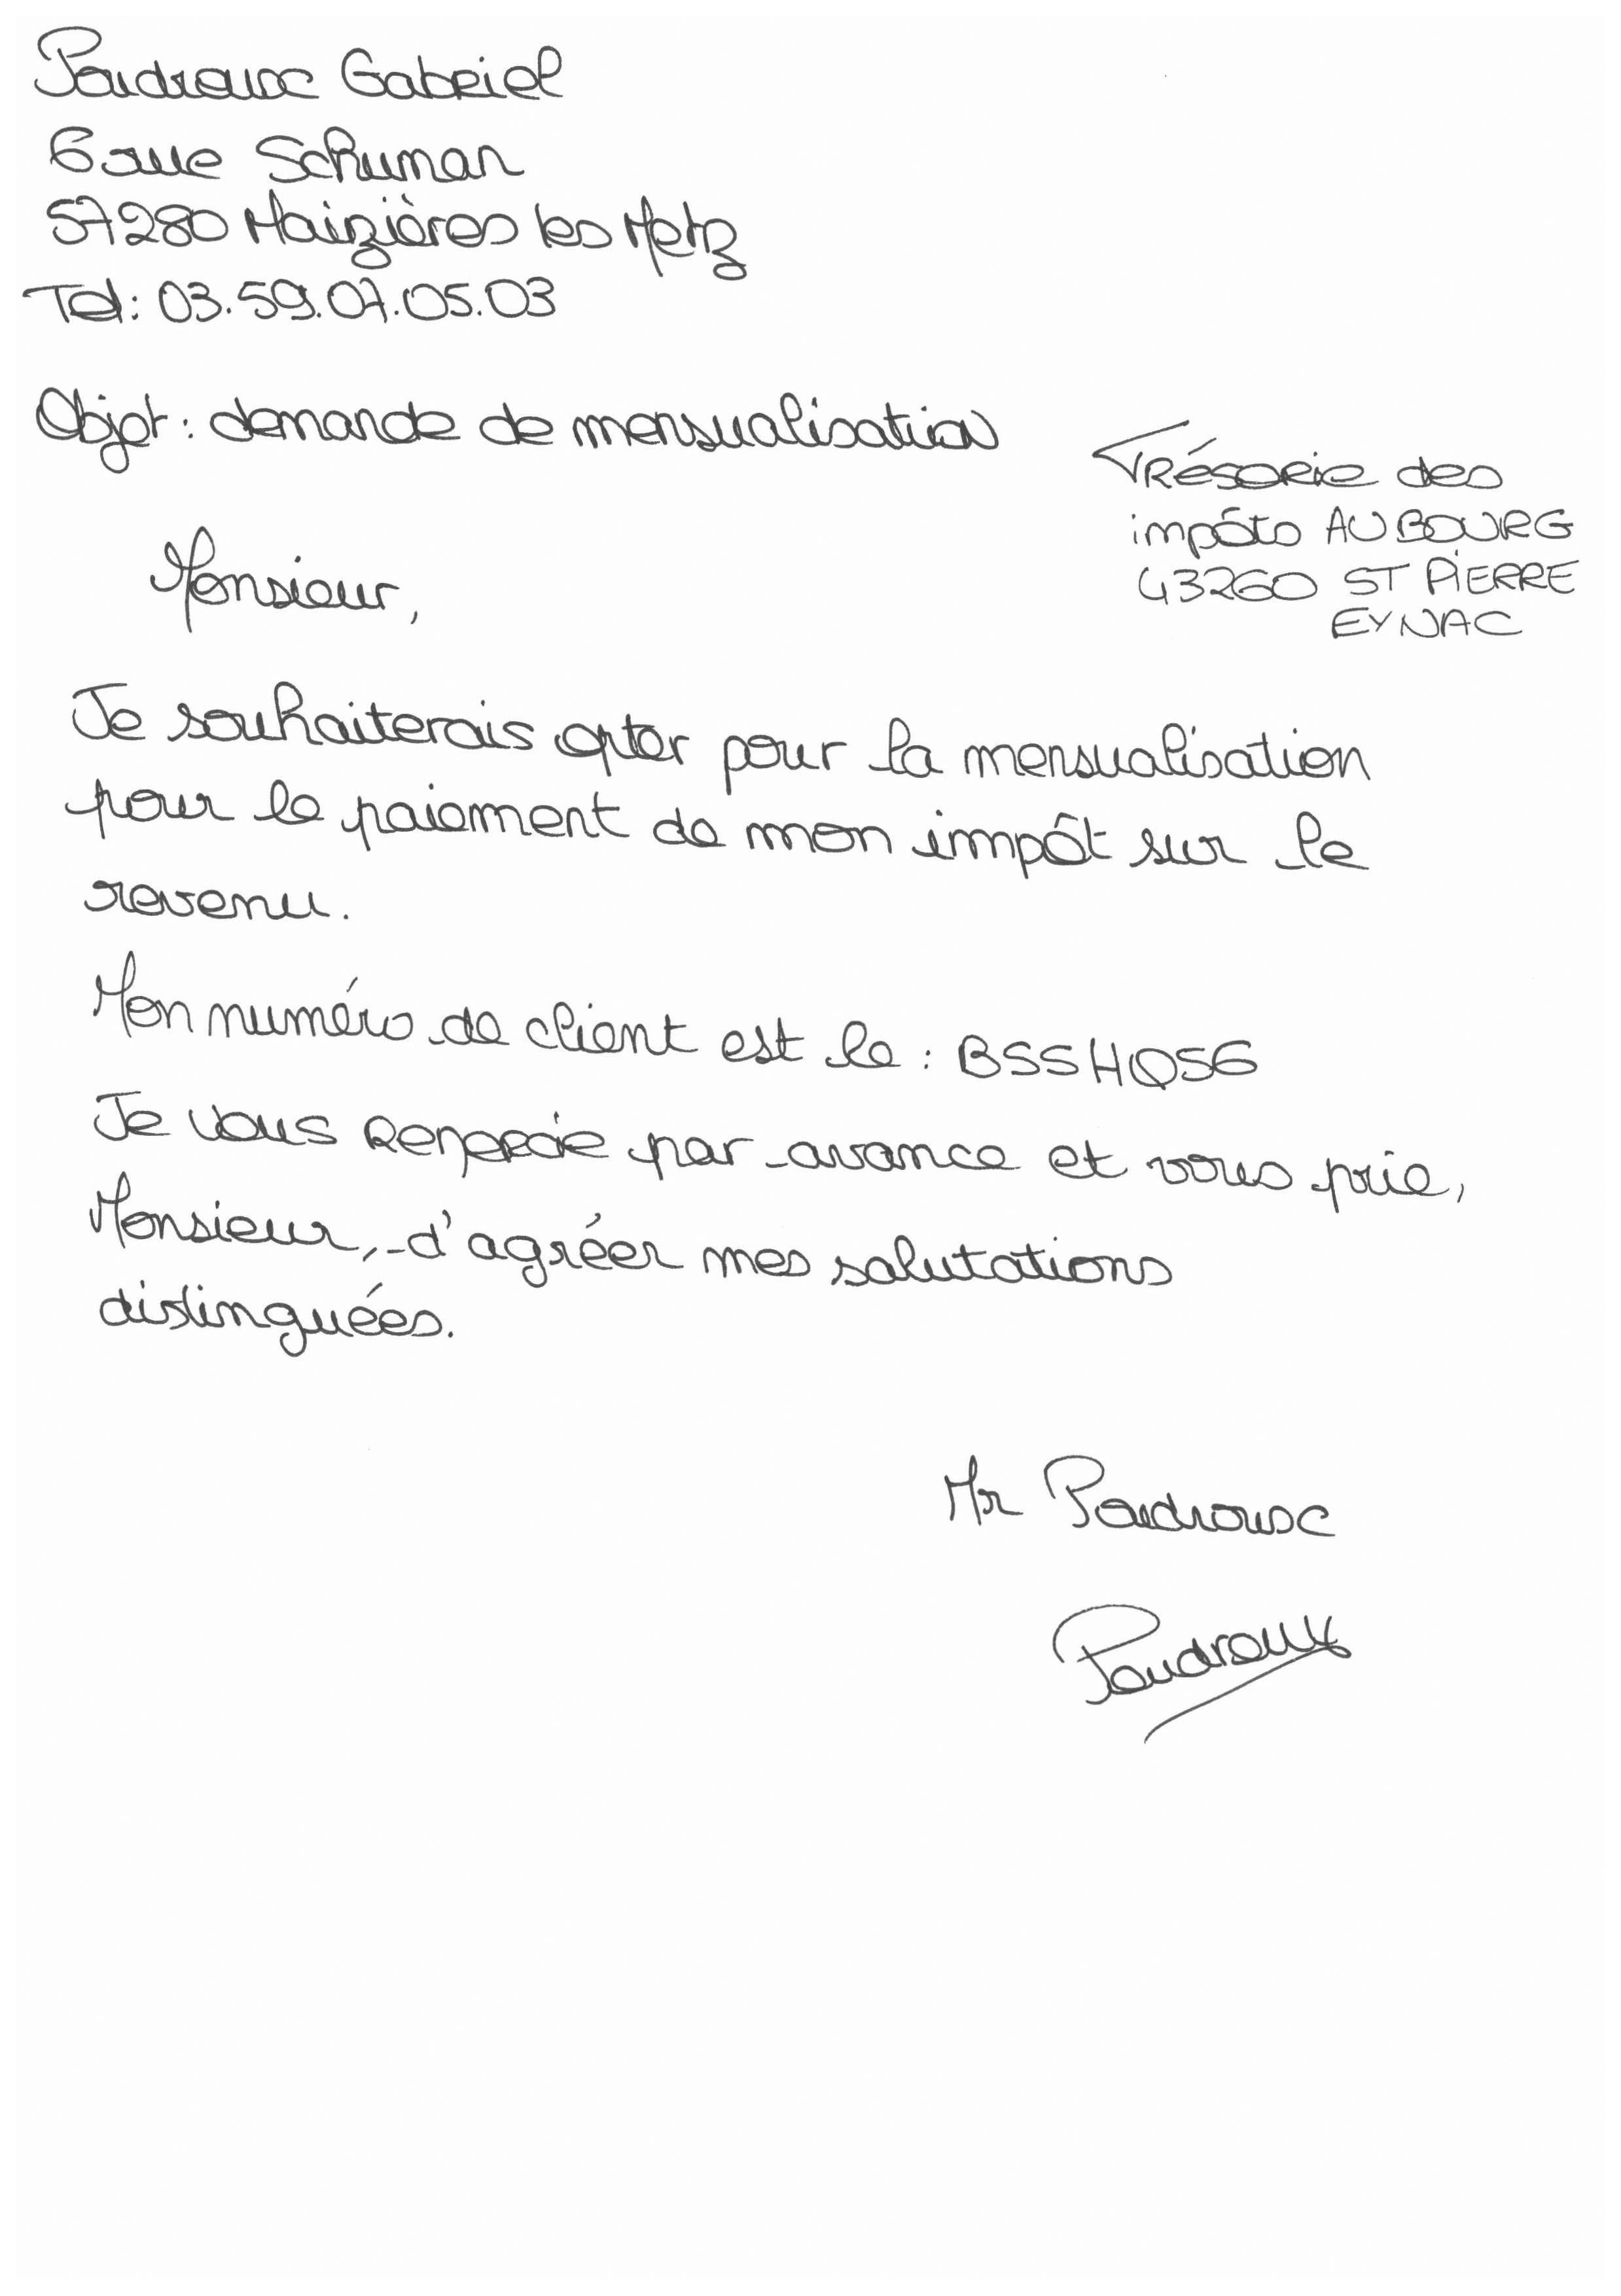 Poudroux Gabriel
6 rue Schuman
57280 Maizières les Metz
Tel: 03.59.07.05.03
Objet : demande de mensualisation
TRÉSORIE des
impôts AU BOURG
43260 ST PIERRE
EYNAC
Monsieur,
Je souhaiterais opter pour la mensualisation
pour le paiement de mon impôt sur le
revenu.
Mon numéro de client est le : BSSHQ56
Je vous remercie par avance et vous prie,
Monsieur, d'agréer mes salutations
distinguées.
Mr Poudroux
Poudroux